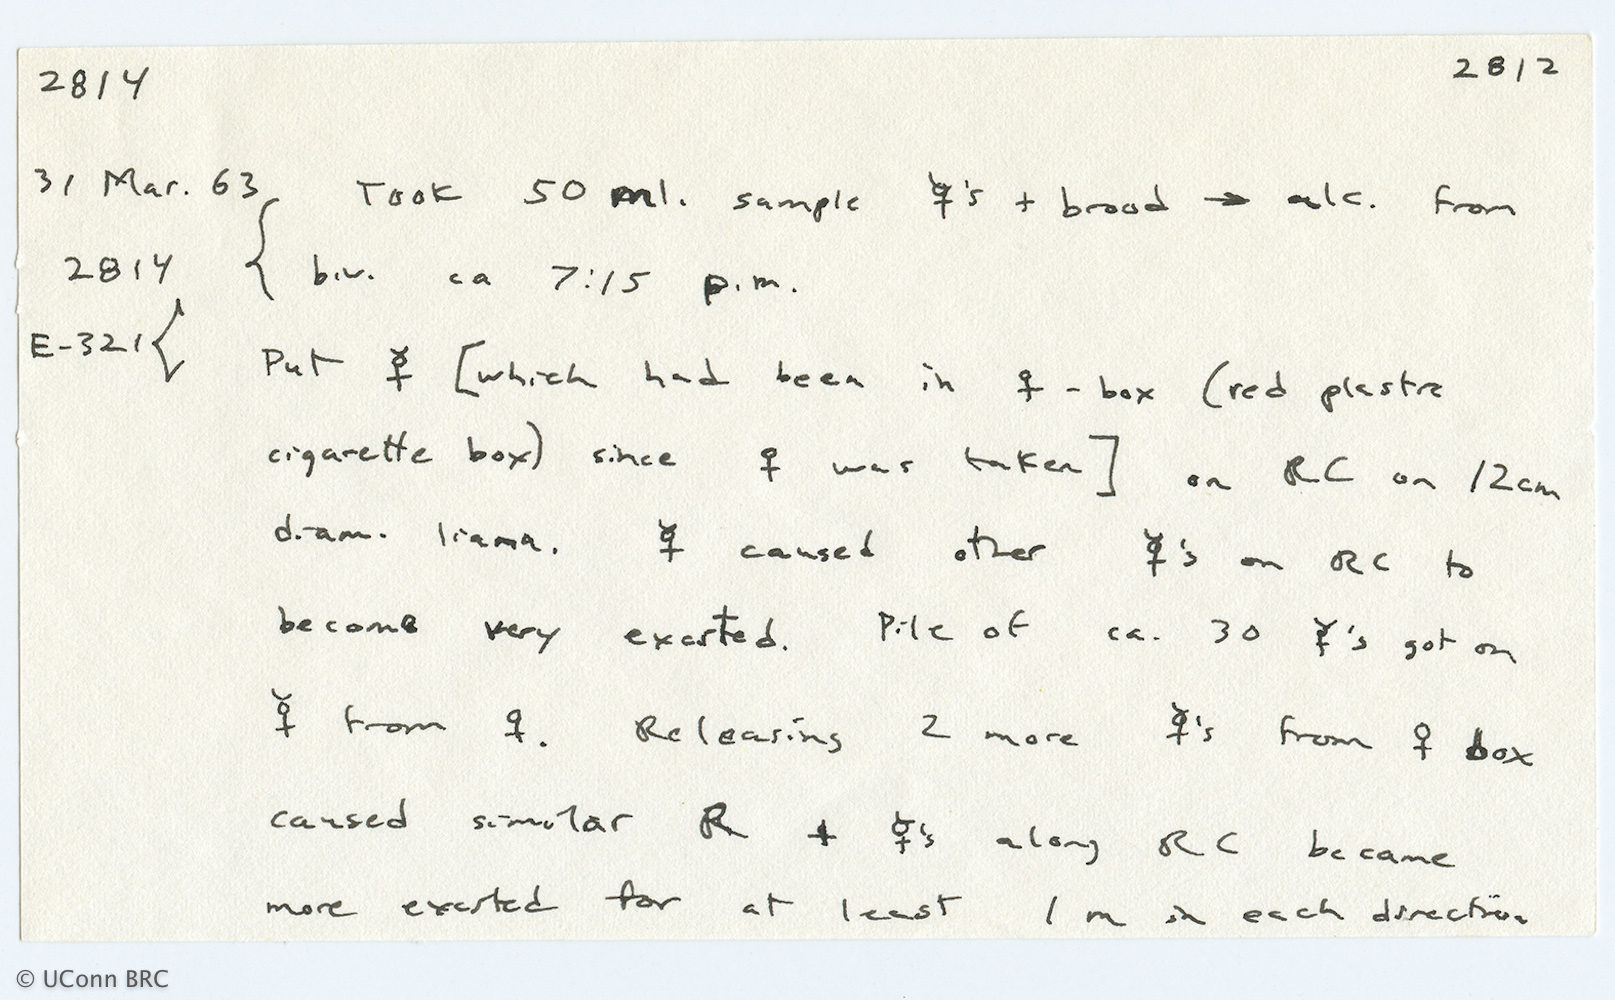 2814 2812
31 Mar. 63 { Took 50 ml. sample ☿'s + brood → alc. from
2814 { biv. ca 7:15 p.m.
E-321 { Put ☿ [which had been in ♀-box (red plastic
cigarette box) since ♀ was taken] on RC on 12cm
diam. liana. ☿ caused other ☿'s on RC to
become very excited. Pile of ca. 30 ☿'s got on
☿ from ♀. Releasing 2 more ☿'s from ♀ box
caused similar R + ☿'s along RC became
more excited for at least 1 m in each direction
© UConn BRC